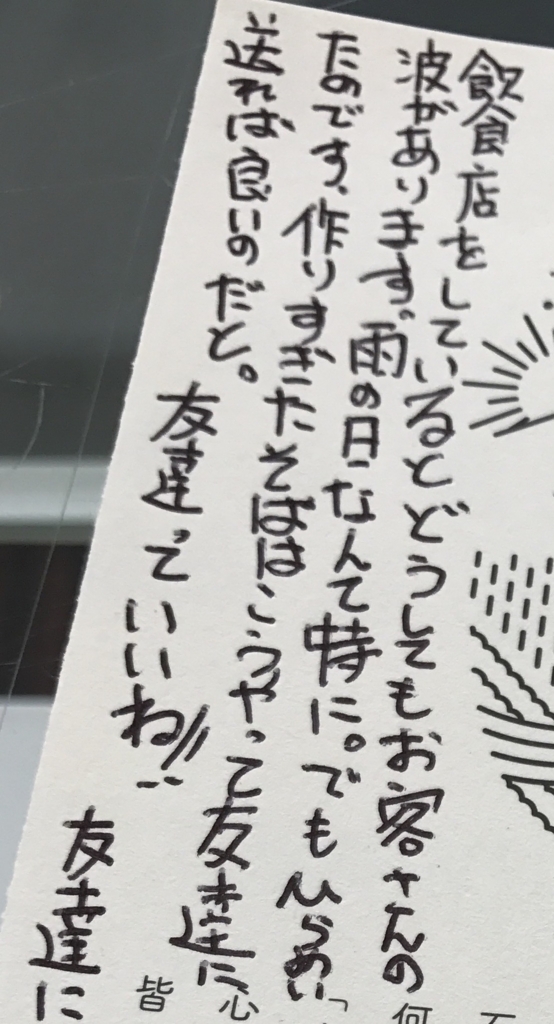 飲食店をしているとどうしてもお客さんの
波があります。雨の日なんて特に。でもひらめい
たのです、作りすぎたそばはこうやって友達に
送れば良いのだと。
友達っていいね!!
友達に
何
心
皆